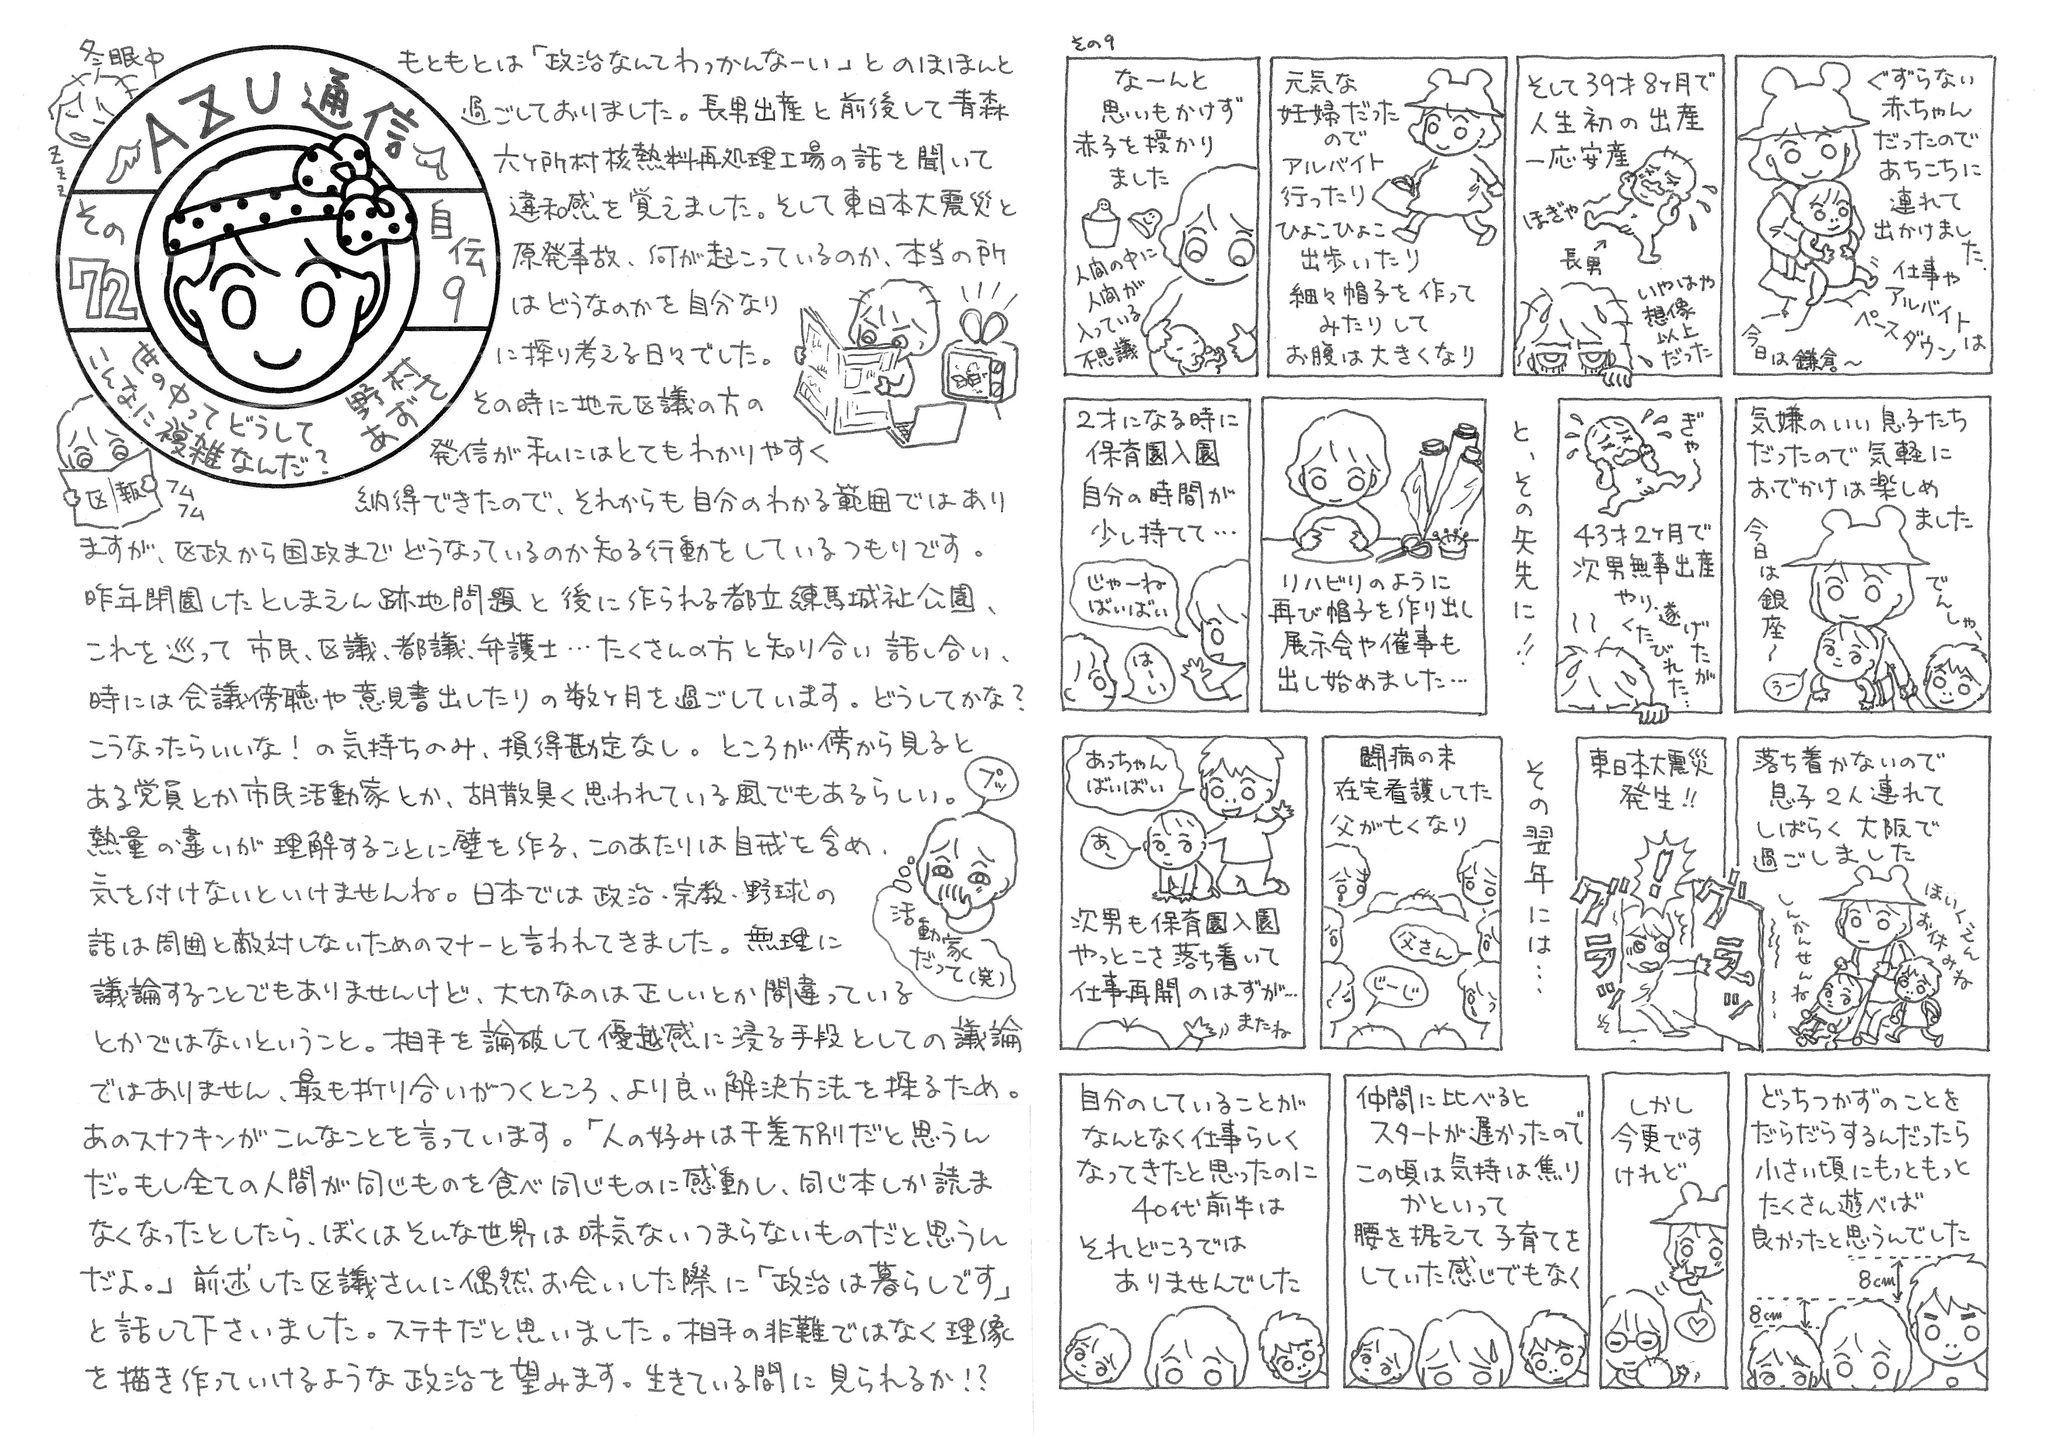 冬眠中
ZZZ
AZU通信
その
72
自伝
9
世の中ってどうして
こんなに複雑なんだ?
野村
あず
区報
フム
フム
もともとは「政治なんてわっかんなーい」とのほほんと
過ごしておりました。長男出産と前後して青森
六ヶ所村核熱料再処理工場の話を聞いて
違和感を覚えました。そして東日本大震災と
原発事故、何が起こっているのか、本当の所
はどうなのかを自分なり
に探り考える日々でした。
その時に地元区議の方の
発信が私にはとてもわかりやすく
納得できたので、それからも自分のわかる範囲ではあり
ますが、区政から国政までどうなっているのか知る行動をしているつもりです。
昨年閉園したとしまえん跡地問題と後に作られる都立練馬城址公園、
これを巡って市民、区議、都議、弁護士…たくさんの方と知り合い話し合い、
時には会議傍聴や意見書出したりの数ヶ月を過ごしています。どうしてかな?
こうなったらいいな!の気持ちのみ、損得勘定なし。ところが傍から見ると
ある党員とか市民活動家とか、胡散臭く思われている風でもあるらしい。
熱量の違いが理解することに壁を作る、このあたりは自戒を含め、
気を付けないといけませんね。日本では政治・宗教・野球の
話は周囲と敵対しないためのマナーと言われてきました。無理に
議論することでもありませんけど、大切なのは正しいとか間違っている
とかではないということ。相手を論破して優越感に浸る手段としての議論
ではありません、最も折り合いがつくところ、より良い解決方法を探るため。
あのスナフキンがこんなことを言っています。「人の好みは千差万別だと思うん
だ。もし全ての人間が同じものを食べ同じものに感動し、同じ本しか読ま
なくなったとしたら、ぼくはそんな世界は味気ないつまらないものだと思うん
だよ。」前述した区議さんに偶然お会いした際に「政治は暮らしです」
と話して下さいました。ステキだと思いました。相手の非難ではなく理像
を描き作っていけるような政治を望みます。生きている間に見られるか!?
プッ
活動家
だって(笑)
その9
なーんと
思いもかけず
赤子を授かり
ました
人間の中に
人間が
入っている
不思議
元気な
妊婦だった
ので
アルバイト
行ったり
ひょこひょこ
出歩いたり
細々帽子を作って
みたりして
お腹は大きくなり
そして39才8ヶ月で
人生初の出産
一応安産
ほぎゃ
長男
いやはや
想像
以上
だった
ぐずらない
赤ちゃん
だったので
あちこちに
連れて
出かけました。
仕事や
アルバイトは
ペースダウン
今日は鎌倉~
2才になる時に
保育園入園
自分の時間が
少し持てて…
じゃーね
ばいばい
はーい
リハビリのように
再び帽子を作り出し
展示会や催事も
出し始めました…
と、その矢先に!!
ぎゃー
43才2ヶ月で
次男無事出産
やり遂げたが
くたびれた…
気嫌のいい息子たち
だったので気軽に
おでかけは楽しめ
ました
今日は銀座~
でんしゃ、
うー
あっちゃん
ばいばい
あ、
次男も保育園入園
やっとこさ落ち着いて
仕事再開のはずが…
またね
闘病の末
在宅看護してた
父が亡くなり
父さん
じーじ
その翌年には…
東日本大震災
発生!!
!
グラッ
グラッ
落ち着かないので
息子2人連れて
しばらく大阪で
過ごしました
しんかんせんね
ほいくえん
お休みね
自分のしていることが
なんとなく仕事らしく
なってきたと思ったのに
40代前半は
それどころでは
ありませんでした
仲間に比べると
スタートが遅かったので
この頃は気持は焦り
かといって
腰を据えて子育てを
していた感じでもなく
しかし
今更です
けれど
どっちつかずのことを
だらだらするんだったら
小さい頃にもっともっと
たくさん遊べば
良かったと思うんでした
8cm
8cm